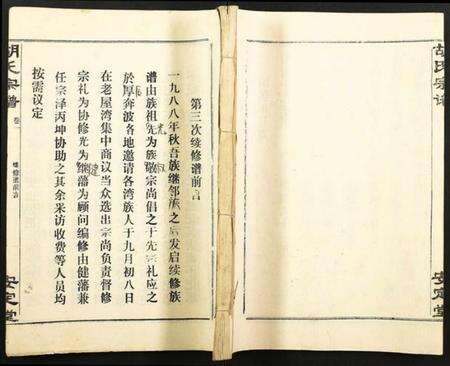 胡氏宗谱
安定堂
第三次续修谱前言
一九八八年秋吾族继邻族之后发启续修族
谱由族祖先为族敬宗尚倡之于先宗礼应之
於厚奔波各地邀请各湾族人于九月初八日
在老屋湾集中商议当众选出宗尚负责督修
宗礼为协修光为继藩为顾问编修由健藩兼
任宗泽丙坤协助之其余采访收费等人员均
按需议定
胡氏宗谱
卷一
续修谱前言
安定堂